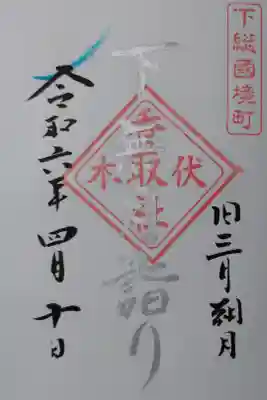 下総國境町
旧三月朔月
下 詣り
伏木
香取社
令和六年 四月 十日